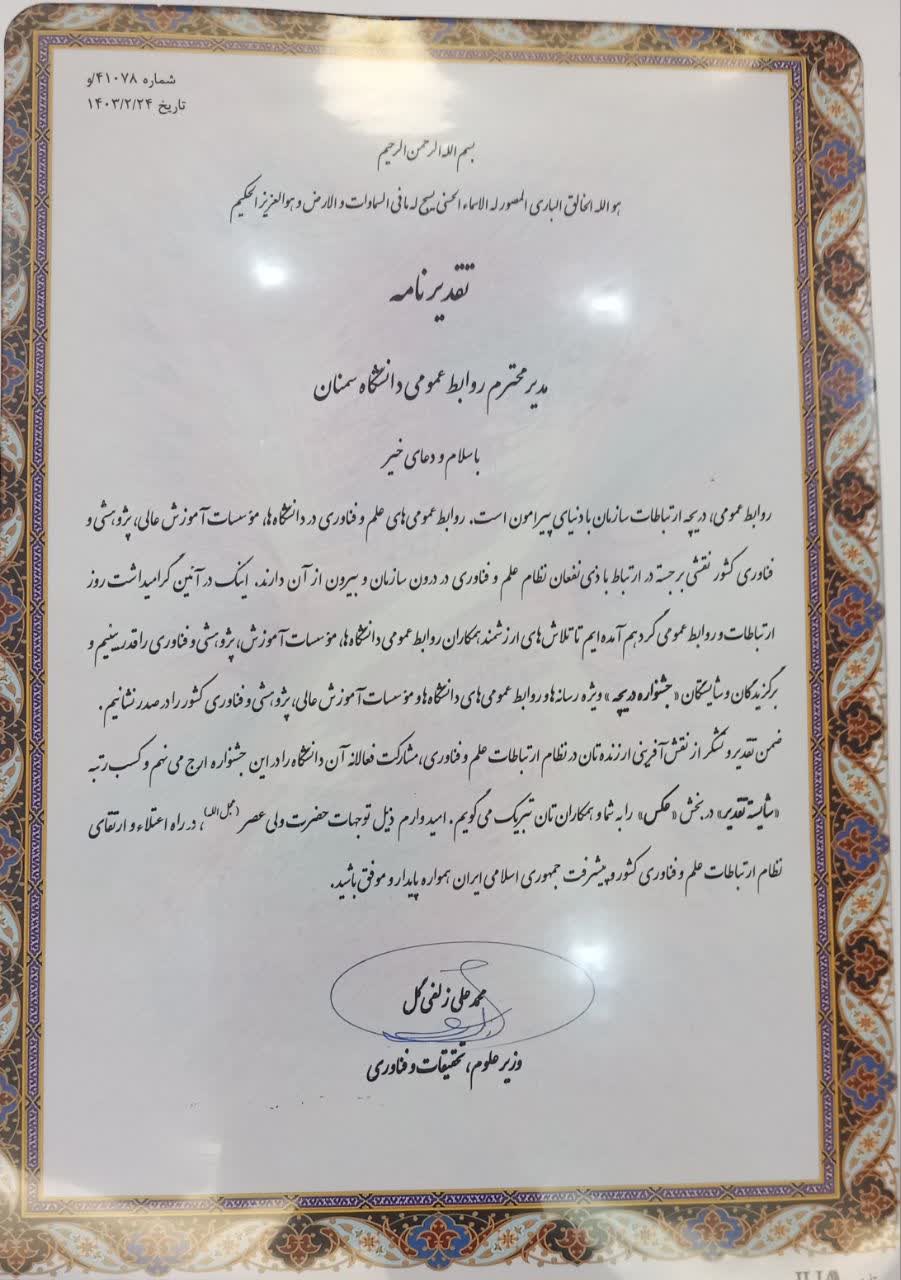 شماره ۴۱۰۷۸/و
تاریخ ۱۴۰۳/۲/۲۴
بسم الله الرحمن الرحیم
هو الله الخالق الباری المصور له الاسماء الحسنی یسبح له ما فی السماوات و الارض و هو العزیز الحکیم
تقدیرنامه
مدیر محترم روابط عمومی دانشگاه سمنان
با سلام و دعای خیر
روابط عمومی، دریچه ارتباطات سازمان با دنیای پیرامون است. روابط عمومی‌های علم و فناوری در دانشگاه‌ها، مؤسسات آموزش عالی، پژوهشی و
فناوری کشور نقشی برجسته در ارتباط با ذی‌نفعان نظام علم و فناوری در درون سازمان و بیرون از آن دارند. اینک در آئین گرامیداشت روز
ارتباطات و روابط عمومی گردهم آمده‌ایم تا تلاش‌های ارزشمند همکاران روابط عمومی دانشگاه‌ها، مؤسسات آموزش، پژوهشی و فناوری را قدر بینیم و
برگزیدگان و شایستگان «جشنواره دریچه» ویژه رسانه‌ها و روابط عمومی‌های دانشگاه‌ها و مؤسسات آموزش عالی، پژوهشی و فناوری کشور را در صدر نشانیم.
ضمن تقدیر و تشکر از نقش‌آفرینی ارزنده‌تان در نظام ارتباطات علم و فناوری، مشارکت فعالانه آن دانشگاه را در این جشنواره ارج می‌نهم و کسب رتبه
«شایسته تقدیر» در بخش «عکس» را به شما و همکاران‌تان تبریک می‌گویم. امیدوارم ذیل توجهات حضرت ولی عصر ، در راه اعتلاء و ارتقای
نظام ارتباطات علم و فناوری کشور و پیشرفت جمهوری اسلامی ایران همواره پایدار و موفق باشید.
محمدعلی زلفی‌گل
وزیر علوم، تحقیقات و فناوری